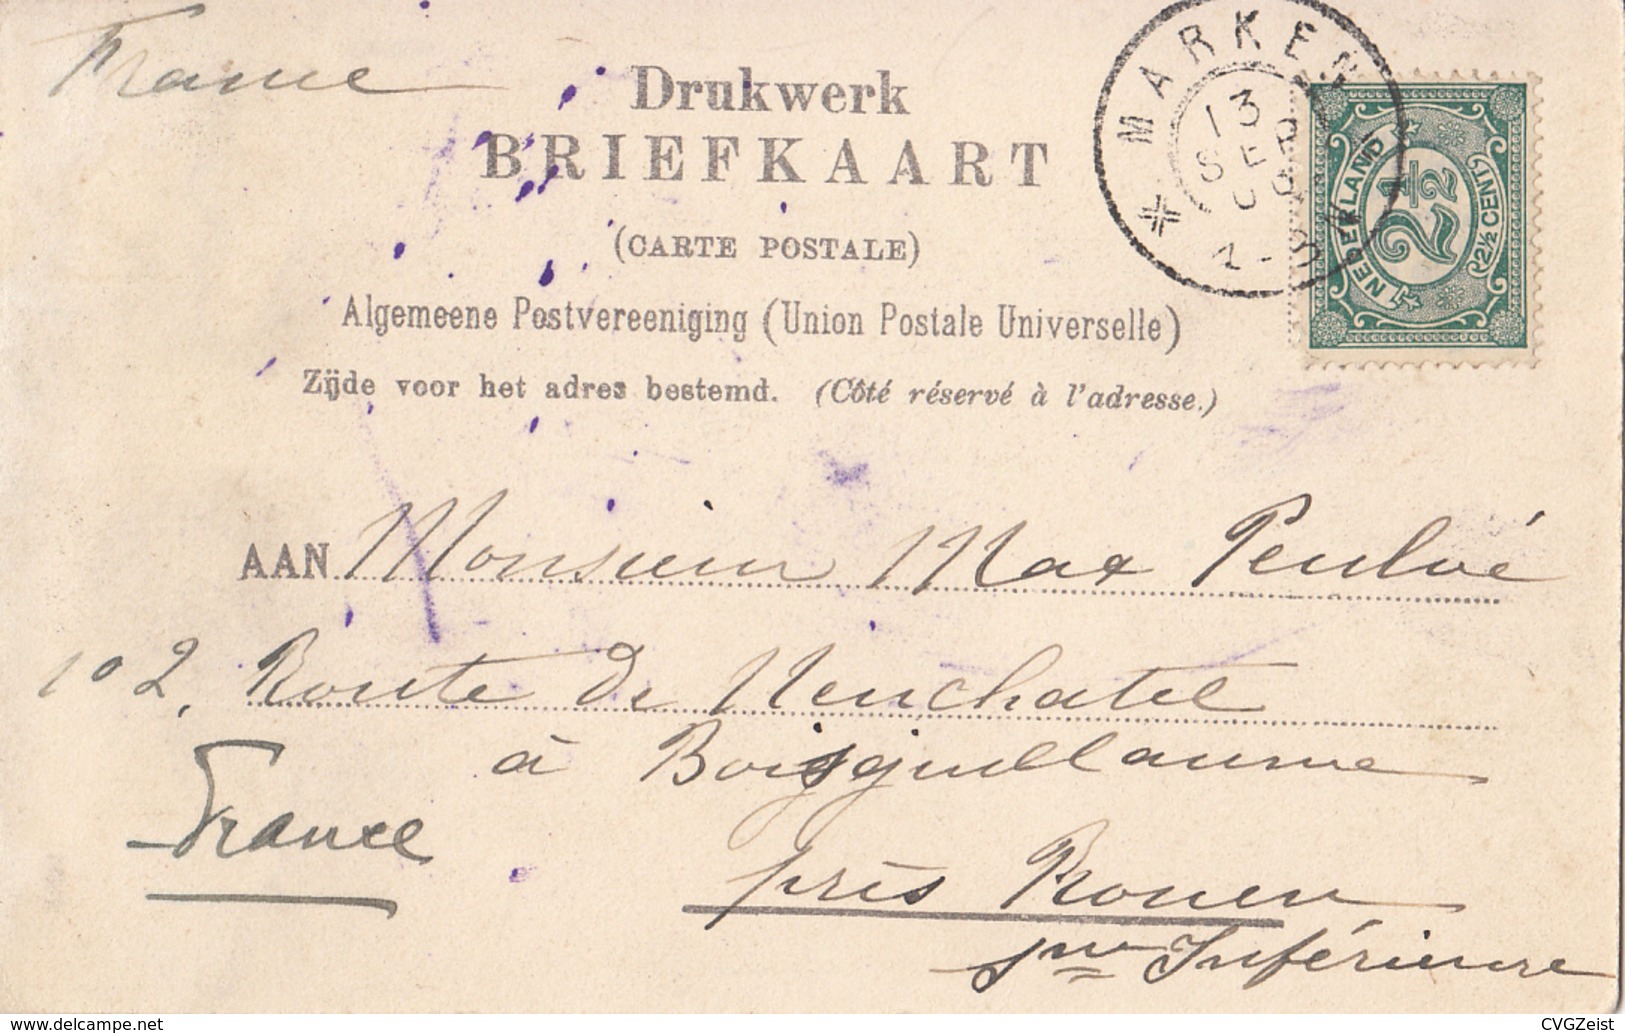 France
Drukwerk
BRIEFKAART
(CARTE POSTALE)
Algemeene Postvereeniging (Union Postale Universelle)
Zijde voor het adres bestemd. (Côté réservé à l'adresse.)
MARKEN
13
SEP
NEDERLAND
2 1/2
(2½ CENT)
AAN Monsieur Max Peulvé
102, Route de Neuchatel
à Boisguillaume
France
près Rouen
Sne Inférieure
delcampe.net
CVGZeist